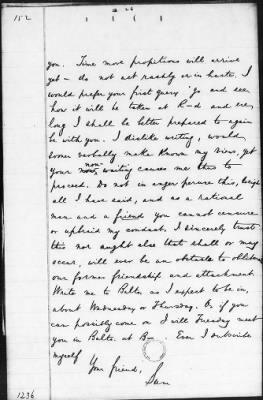 152
you. Time more propitious will arrive
yet - do not act rashly or in haste. I
would prefer your first query, "go and see
how it will be taken at R-d" and ere
long I shall be better prepared to again
be with you. I dislike writing, would
sooner verbally make known my views, yet
your non-writing causes me thus to
proceed. Do not in anger peruse this, weigh
all I have said, and as a rational
man and a friend you cannot censure
or upbraid my conduct. I sincerely trust
this nor aught else that shall or may
occur, will ever be an obstacle to obliterate
our former friendship and attachment.
Write me to Balto. as I expect to be in,
about Wednesday or Thursday. Or if you
can possibly come on I will Tuesday meet
you in Balto. at B- Ever I subscribe
myself
Your friend,
Sam
1236